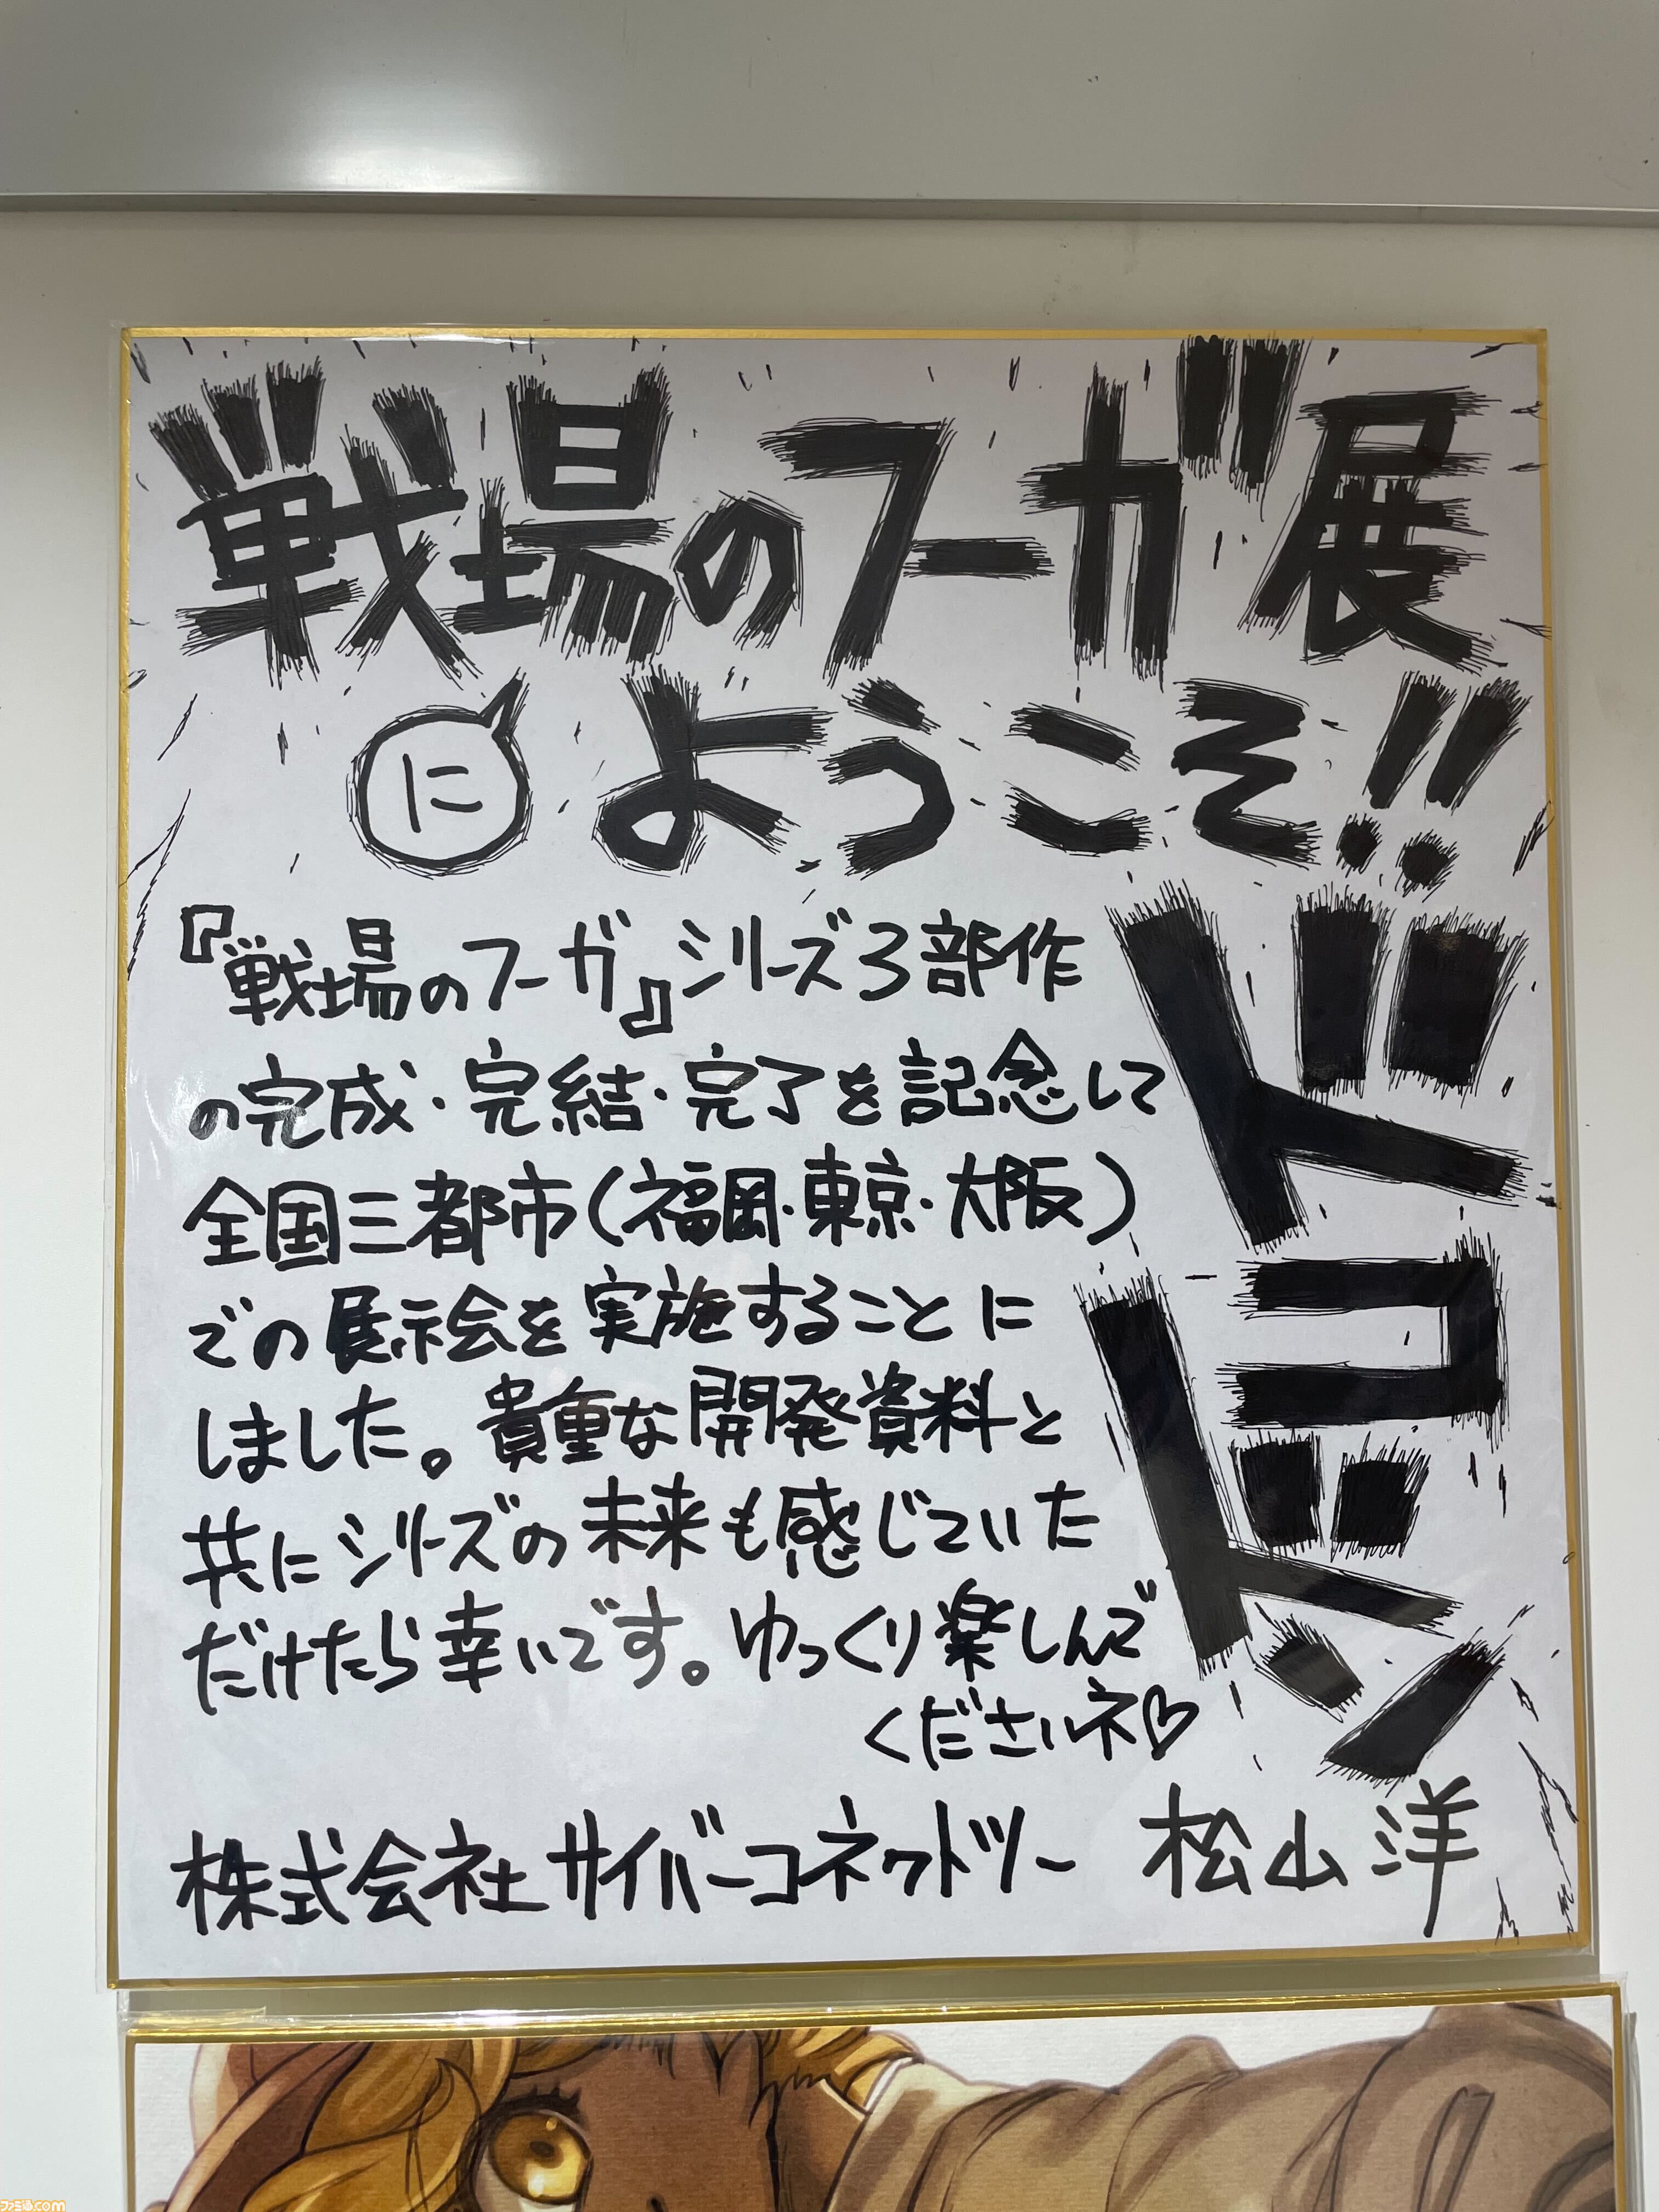 戦場のフーガ展
にようこそ!!
『戦場のフーガ』シリーズ3部作
の完成・完結・完了を記念して
全国三都市(福岡・東京・大阪)
での展示会を実施することに
しました。貴重な開発資料と
共にシリーズの未来も感じていた
だけたら幸いです。ゆっくり楽しんで
くださいネ♡
ドドン
株式会社サイバーコネクトツー 松山洋
ファミ通.com